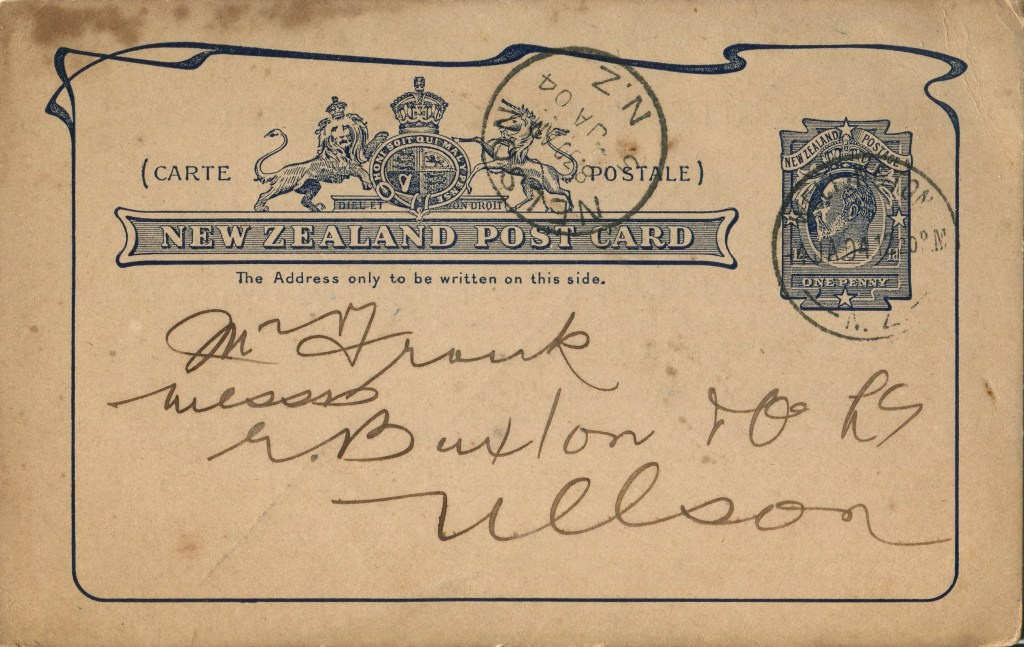 (CARTE POSTALE)
HONI SOIT QUI MAL Y PENSE
DIEU ET MON DROIT
NEW ZEALAND POST CARD
The Address only to be written on this side.
NEW ZEALAND POSTAGE
ONE PENNY
NELSON
JA 04
N.Z
WELLINGTON
JA 04 12
P.M
N.Z
Mr Frank
Messrs
E. Buxton & Co
Nelson